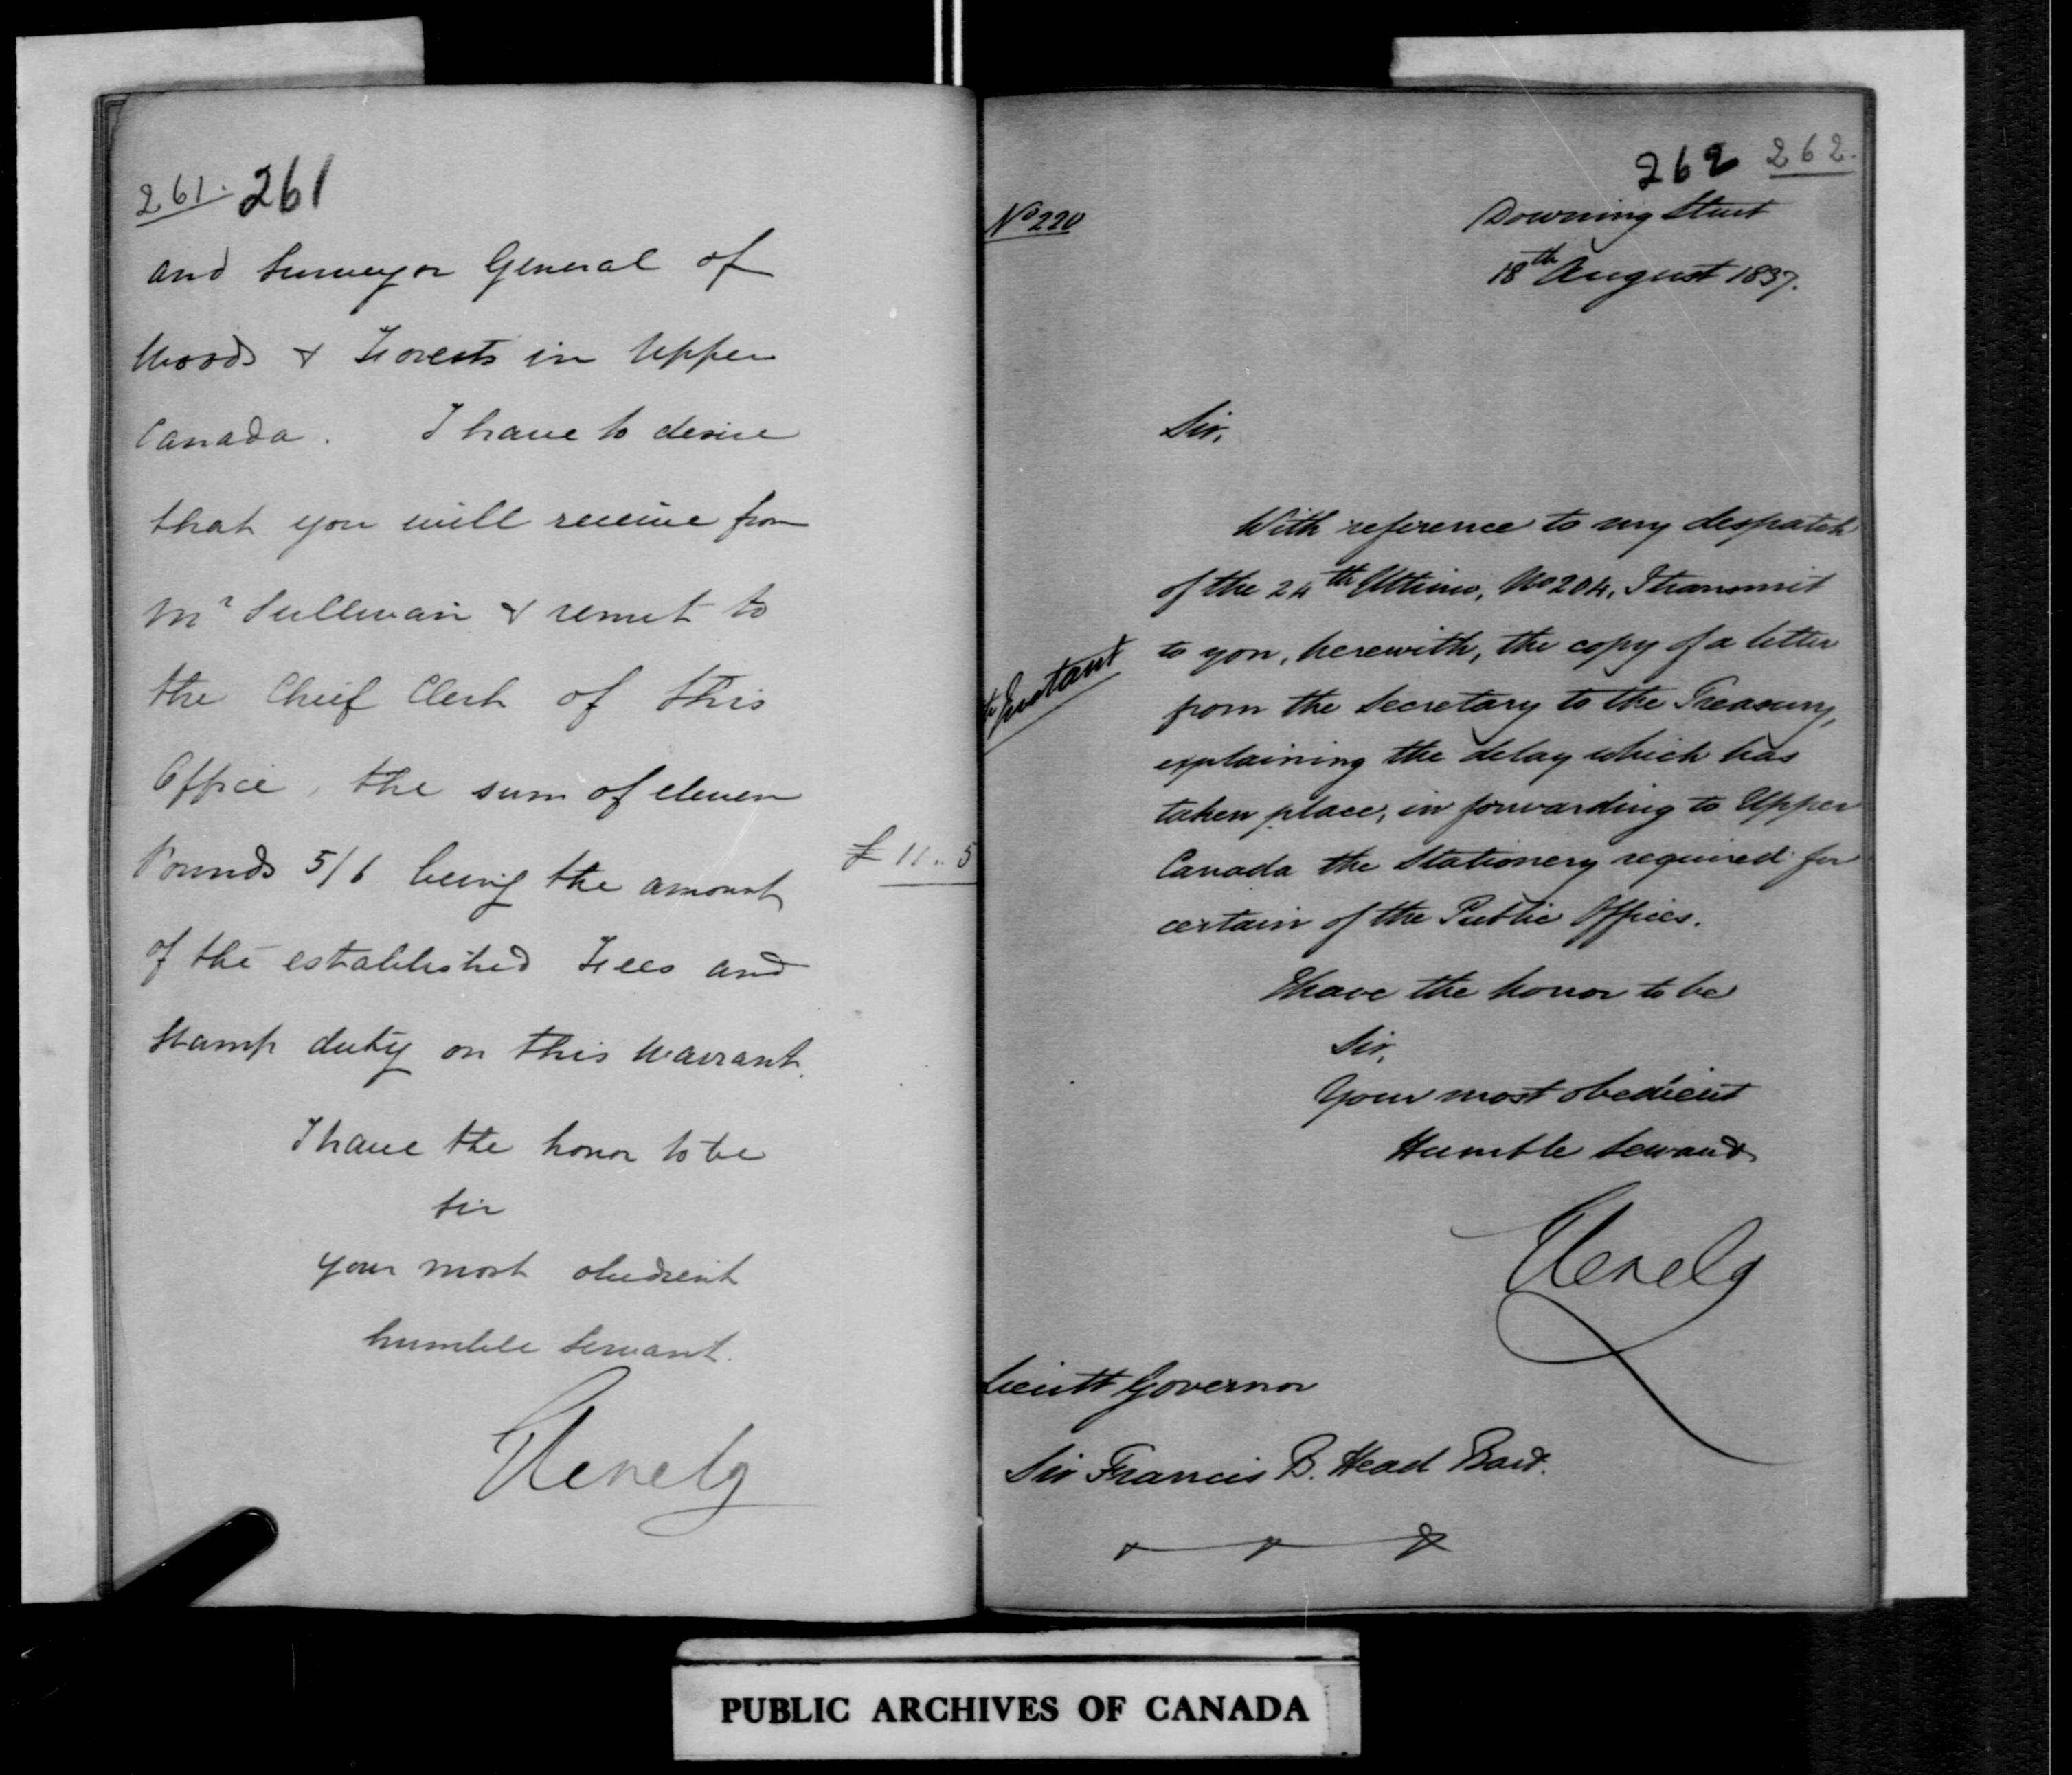 261. 261
and Surveyor General of
Woods & Forests in Upper
Canada. I have to desire
that you will receive from
Mr Sullivan & remit to
the Chief Clerk of this
Office, the sum of eleven
Pounds 5/6 being the amount
£ 11..5
of the established Fees and
Stamp duty on this Warrant.
I have the honor to be
Sir
your most obedient
humble Servant.
Glenelg
262 262.
No 220
Downing Street
18th August 1837.
Sir,
With reference to my despatch
of the 24th Ultimo, No 204, I transmit
to you, herewith, the copy of a letter
Instant
from the Secretary to the Treasury,
explaining the delay which has
taken place, in forwarding to Upper
Canada the Stationery required for
certain of the Public Offices.
I have the honor to be
Sir,
Your most obedient
Humble Servant
Glenelg
Lieutt Governor
Sir Francis B. Head Bart.
PUBLIC ARCHIVES OF CANADA